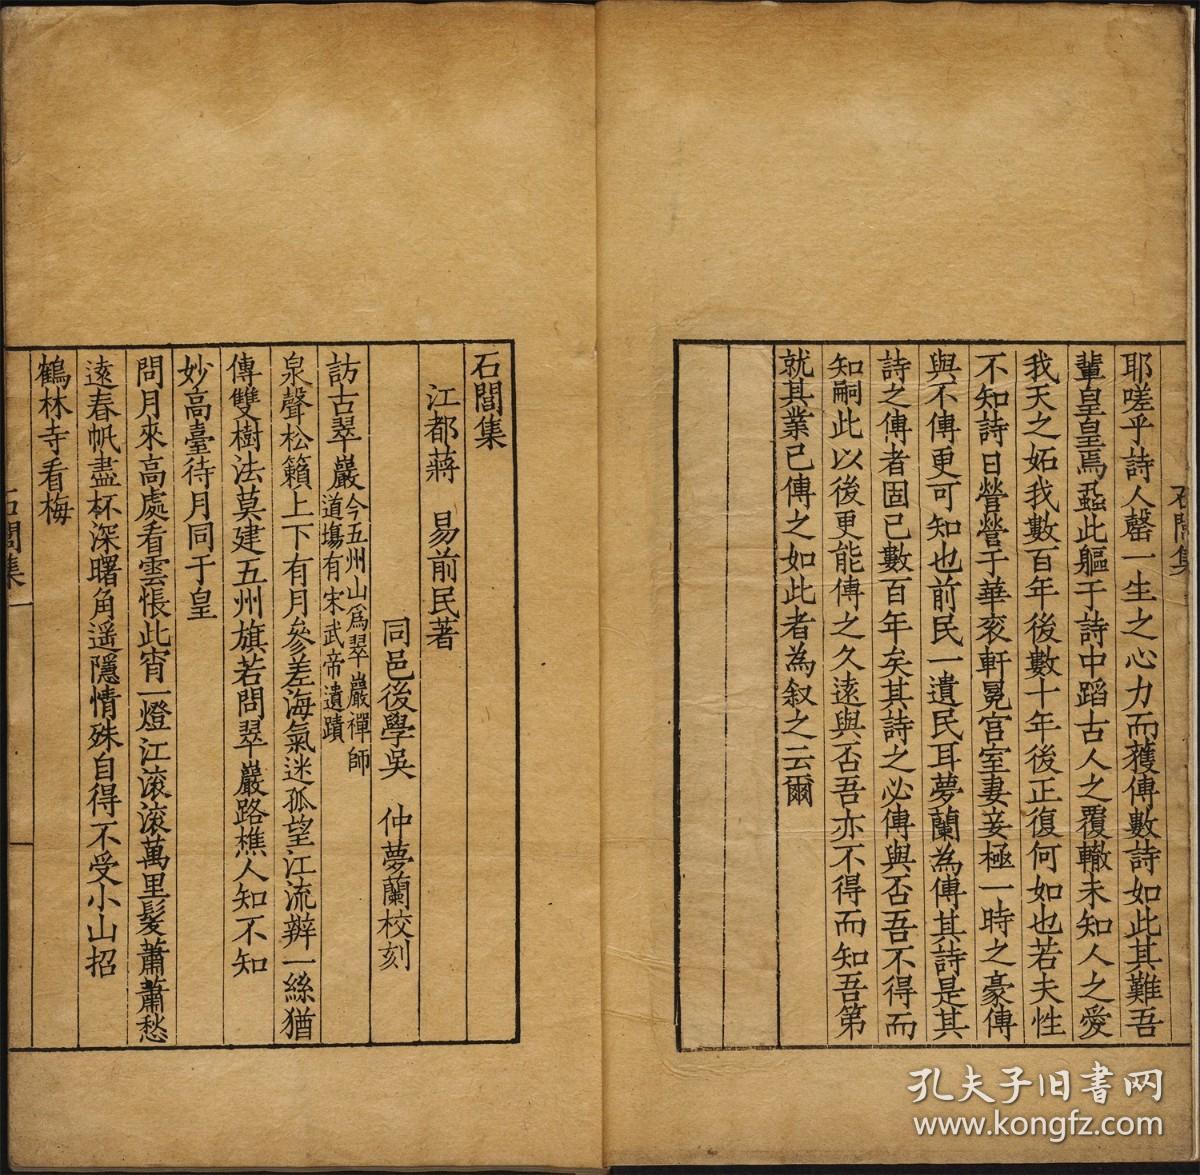 石閭集
耶嗟乎詩人罄一生之心力而獲傳數詩如此其難吾
輩皇皇焉蝨此軀于詩中蹈古人之覆轍未知人之愛
我天之妬我數百年後數十年後正復何如也若夫性
不知詩日營營于華衮軒冕宫室妻妾極一時之豪傳
與不傳更可知也前民一遺民耳夢蘭為傳其詩是其
詩之傳者固已數百年矣其詩之必傳與否吾不得而
知嗣此以後更能傳之久遠與否吾亦不得而知吾第
就其業已傳之如此者為叙之云爾
石閭集
江都蔣 易前民著
同邑後學吳 仲夢蘭校刻
訪古翠巖今五州山爲翠巖禪師
道塲有宋武帝遺蹟
泉聲松籟上下有月參差海氣迷孤望江流辨一絲猶
傳雙樹法莫建五州旗若問翠巖路樵人知不知
妙高臺待月同于皇
問月來高處看雲悵此宵一燈江滚滚萬里髮蕭蕭愁
遠春帆盡杯深曙角遥隱情殊自得不受小山招
鶴林寺看梅
石閭集 一
孔夫子旧书网
www.kongfz.com